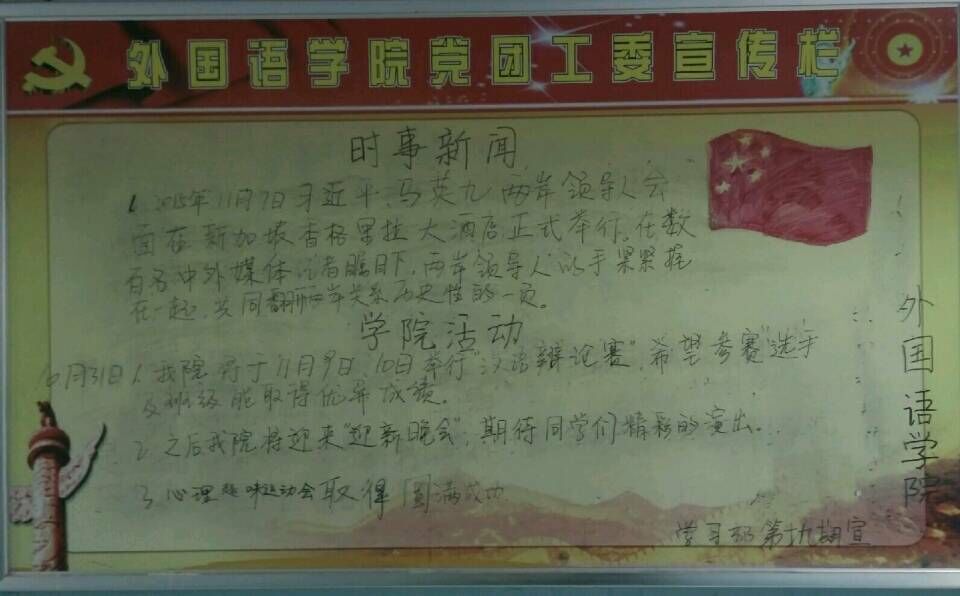 外国语学院党团工委宣传栏
时事新闻
1. 2015年11月7日习近平、马英九两岸领导人会
面在新加坡香格里拉大酒店正式举行。在数
百名中外媒体记者瞩目下,两岸领导人的手紧紧握
在一起,共同翻开两岸关系历史性的一页。
学院活动
10月31日 1. 我院将于11月9日、10日举行"汉语辩论赛",希望参赛"选手
及班级能取得优异成绩。
2. 之后我院将迎来"迎新晚会",期待同学们精彩的演出。
3 心理趣味运动会取得圆满成功
学习部第九期宣
外国语学院